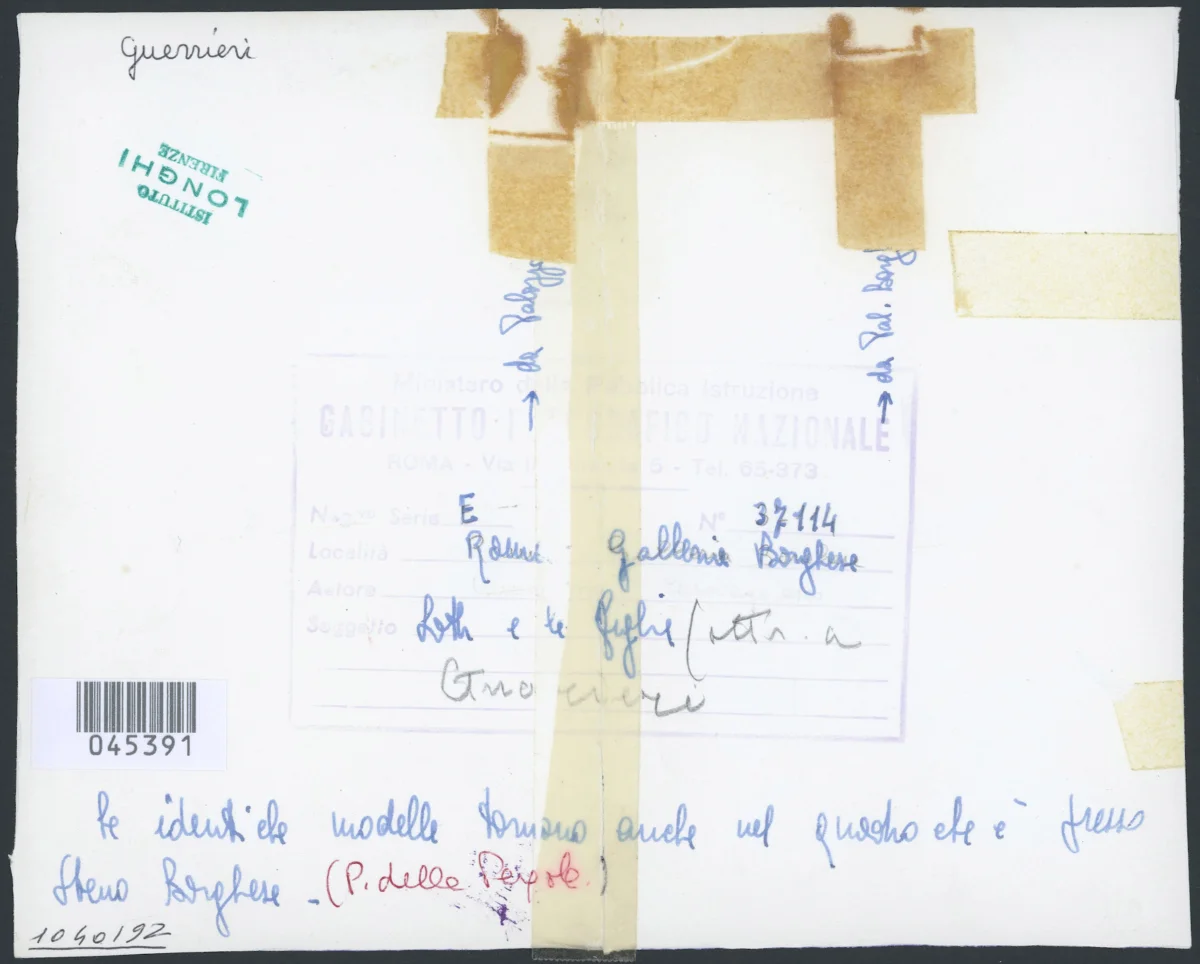 Guerrieri
ISTITUTO
LONGHI
FIRENZE
→ da Palazzo
→ da Pal. Borgh
Ministero della Pubblica Istruzione
GABINETTO FOTOGRAFICO NAZIONALE
ROMA - Via 6 - Tel. 65-973
Serie E N° 37114
Località Roma Galleria Borghese
Autore
Soggetto Loth e le figlie (attr. a
Guerrieri
045391
le identiche modelle tornano anche nel quadro che è presso
Steno Borghese - (P. della Pergola.)
1040192